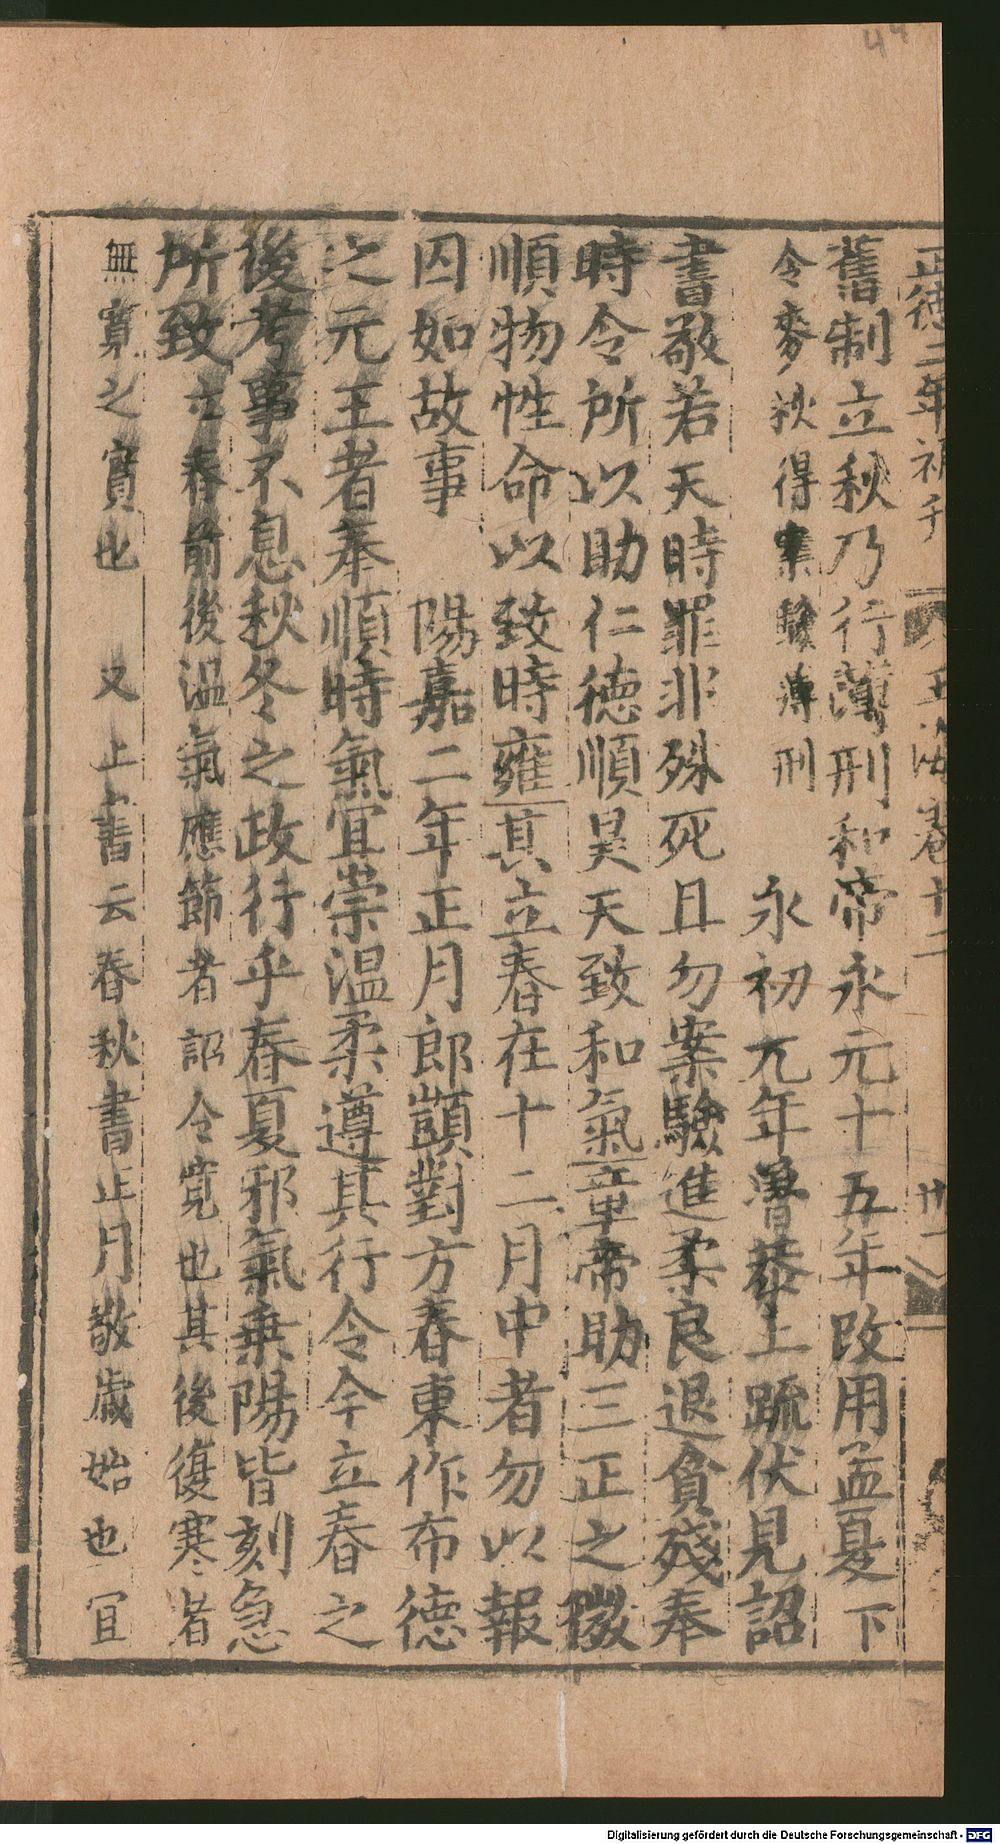 正徳二年補刊 玉海卷十二 廿一
舊制立秋乃行薄刑和帝永元十五年改用孟夏下
令麥秋得案驗薄刑 永初元年魯恭上疏伏見詔
書敬若天時罪非殊死且勿案驗進柔良退貪殘奉
時令所以助仁德順昊天致和氣章帝助三正之微
順物性命以致時雍其立春在十二月中者勿以報
囚如故事 陽嘉二年正月郎顗對方春東作布德
之元王者奉順時氣宜崇温柔遵其行令今立春之
後考事不息秋冬之政行乎春夏邪氣乗陽皆刻急
所致立春前後温氣應節者詔令寛也其後復寒者
無寛之實也 又上書云春秋書正月敬歲始也宜
Digitalisierung gefördert durch die Deutsche Forschungsgemeinschaft - DFG